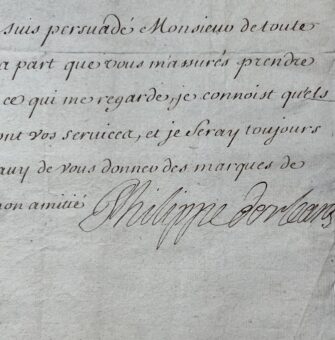 suis persuadé Monsieur de toute
a part que vous m'assurés prendre
ce qui me regarde, je connoist quels
ont vos services, et je seray toujours
de vous donner des marques de
mon amitié Philippe dorleans